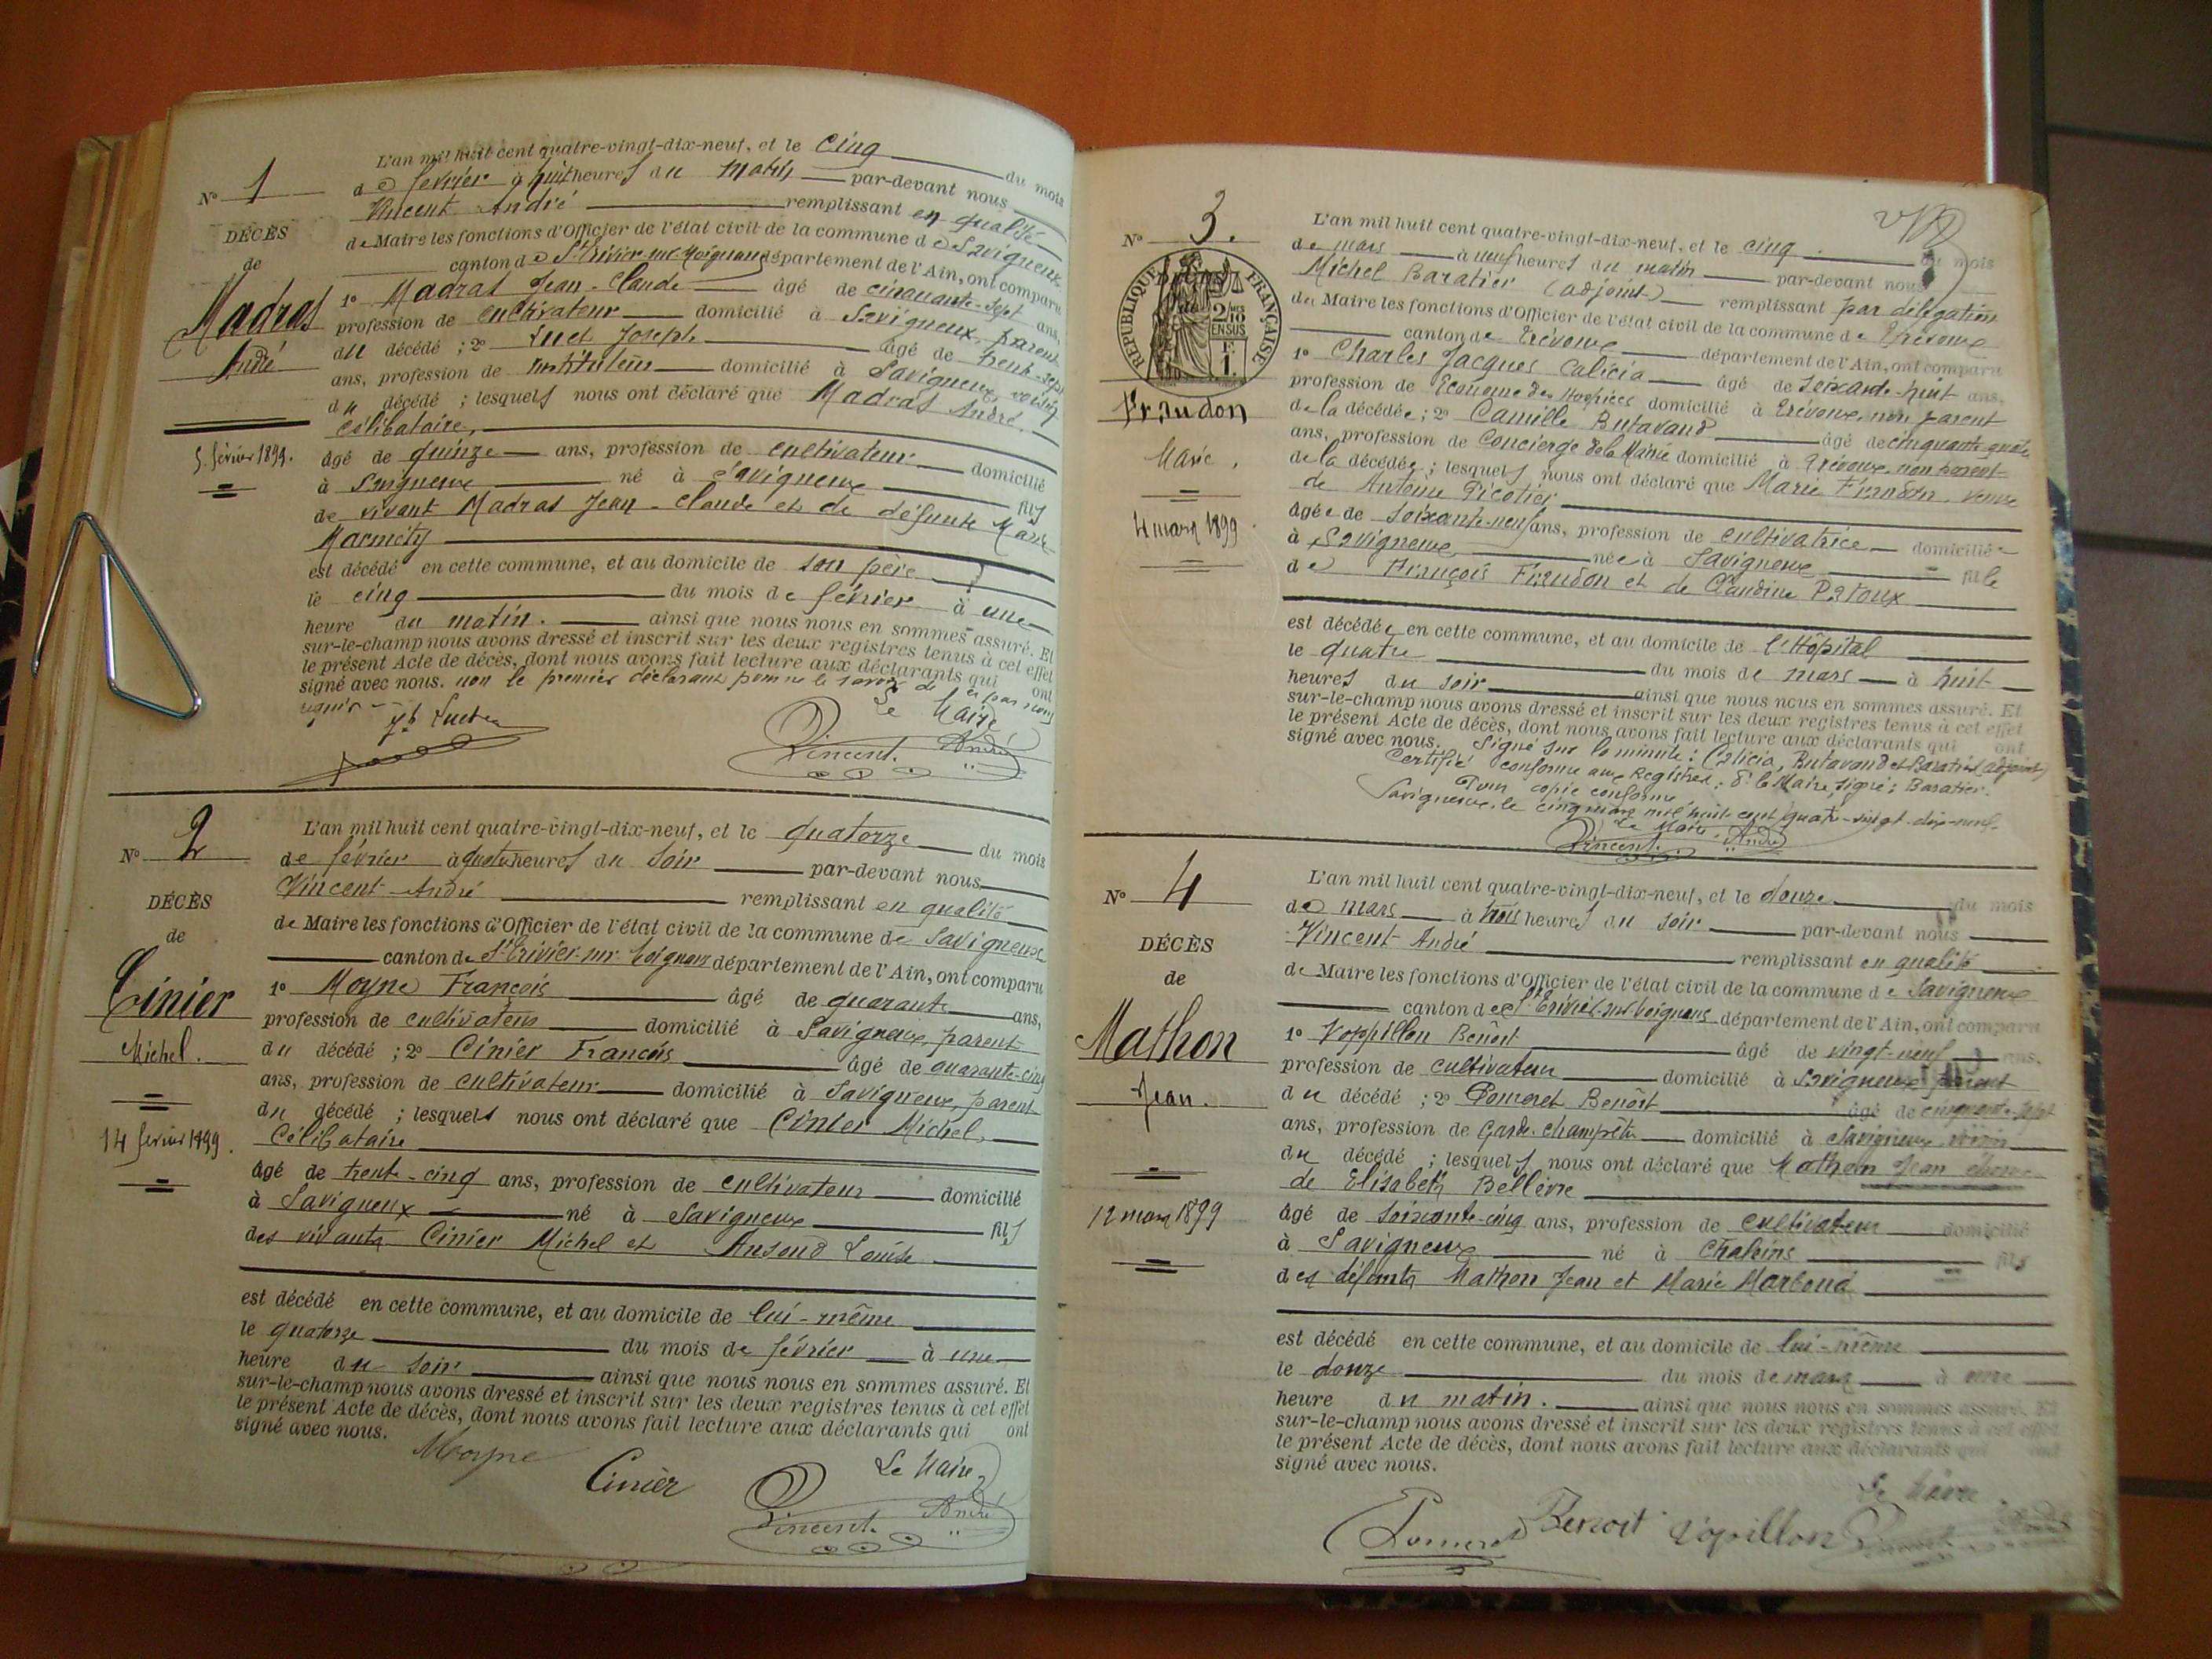 N° 1
DÉCÈS
de
Madras
André
5 février 1899.
L'an mil huit cent quatre-vingt-dix-neuf, et le cinq du mois
de février à huit heures du matin par-devant nous
Vincent André remplissant en qualité
de Maire les fonctions d'Officier de l'état civil de la commune de Savigneux
canton de St Trivier-sur-Moignans département de l'Ain, ont comparu
1° Madras Jean-Claude âgé de cinquante-sept ans,
profession de cultivateur domicilié à Savigneux, parent
du décédé ; 2° Luet Joseph âgé de trente-sept
ans, profession de instituteur domicilié à Savigneux, voisin
du décédé ; lesquels nous ont déclaré que Madras André,
célibataire,
âgé de quinze ans, profession de cultivateur domicilié
à Savigneux né à Savigneux fils
de vivant Madras Jean-Claude et de défunte Marie
est décédé en cette commune, et au domicile de son père
le cinq du mois de février à une
heure du matin. ainsi que nous nous en sommes assuré. Et
sur-le-champ nous avons dressé et inscrit sur les deux registres tenus à cet effet
le présent Acte de décès, dont nous avons fait lecture aux déclarants qui ont
signé avec nous. non le premier déclarant pour ne le savoir de
Le Maire
Vincent André
N° 2
DÉCÈS
de
Cinier
Michel.
14 février 1899.
L'an mil huit cent quatre-vingt-dix-neuf, et le quatorze du mois
de février à quatre heures du soir par-devant nous
Vincent André remplissant en qualité
de Maire les fonctions d'Officier de l'état civil de la commune de Savigneux
canton de St Trivier-sur-Moignans département de l'Ain, ont comparu
1° Moyne François âgé de quarante ans,
profession de cultivateur domicilié à Savigneux, parent
du décédé ; 2° Cinier François âgé de quarante-cinq
ans, profession de cultivateur domicilié à Savigneux, parent
du décédé ; lesquels nous ont déclaré que Cinier Michel,
célibataire
âgé de trente-cinq ans, profession de cultivateur domicilié
à Savigneux né à Savigneux fils
des vivants Cinier Michel et Louise
est décédé en cette commune, et au domicile de lui-même
le quatorze du mois de février à une
heure du soir ainsi que nous nous en sommes assuré. Et
sur-le-champ nous avons dressé et inscrit sur les deux registres tenus à cet effet
le présent Acte de décès, dont nous avons fait lecture aux déclarants qui ont
signé avec nous.
Moyne
Cinier
Le Maire
Vincent André
N° 3.
RÉPUBLIQUE FRANÇAISE
2/10 EN SUS
F. 1.
Frandon
Marie,
4 mars 1899
L'an mil huit cent quatre-vingt-dix-neuf, et le cinq du mois
de mars à neuf heures du matin par-devant nous
Michel Baratier (adjoint) remplissant par délégation
du Maire les fonctions d'Officier de l'état civil de la commune de Trévoux
canton de Trévoux département de l'Ain, ont comparu
1° Charles Jacques Calicia âgé de soixante-huit ans,
profession de Econome des Hospices domicilié à Trévoux, non parent
de la décédée ; 2° Camille Butavand âgé de cinquante-quatre
ans, profession de Concierge de la Mairie domicilié à Trévoux, non parent
de la décédée ; lesquels nous ont déclaré que Marie Frandon, veuve
de Antoine Picotier
âgée de soixante-neuf ans, profession de cultivatrice domiciliée
à Savigneux née à Savigneux fille
de François Frandon et de Claudine Patoux
est décédée en cette commune, et au domicile de l'Hôpital
le quatre du mois de mars à huit
heures du soir ainsi que nous nous en sommes assuré. Et
sur-le-champ nous avons dressé et inscrit sur les deux registres tenus à cet effet
le présent Acte de décès, dont nous avons fait lecture aux déclarants qui ont
signé avec nous. Signé sur la minute : Calicia, Butavand et Baratier (adjoint)
Certifié conforme aux Registres : Pr le Maire, signé : Baratier.
Pour copie conforme
Savigneux, le cinq mars mil huit cent quatre-vingt-dix-neuf.
Le Maire,
Vincent André
N° 4
DÉCÈS
de
Mathon
Jean.
12 mars 1899
L'an mil huit cent quatre-vingt-dix-neuf, et le douze du mois
de mars à trois heures du soir par-devant nous
Vincent André remplissant en qualité
de Maire les fonctions d'Officier de l'état civil de la commune de Savigneux
canton de St Trivier-sur-Moignans département de l'Ain, ont comparu
1° Voppillon Benoît âgé de vingt-neuf ans,
profession de cultivateur domicilié à Savigneux parent
du décédé ; 2° Pomeret Benoît âgé de cinquante-sept
ans, profession de Garde-champêtre domicilié à Savigneux voisin
du décédé ; lesquels nous ont déclaré que Mathon Jean époux
de Elisabeth Bellevre
âgé de soixante-cinq ans, profession de cultivateur domicilié
à Savigneux né à Chaleins fils
des défunts Mathon Jean et Marie Marboud
est décédé en cette commune, et au domicile de lui-même
le douze du mois de mars à une
heure du matin. ainsi que nous nous en sommes assuré. Et
sur-le-champ nous avons dressé et inscrit sur les deux registres tenus à cet effet
le présent Acte de décès, dont nous avons fait lecture aux déclarants qui ont
signé avec nous.
Le Maire
Pomeret Benoit Vopillon Vincent André